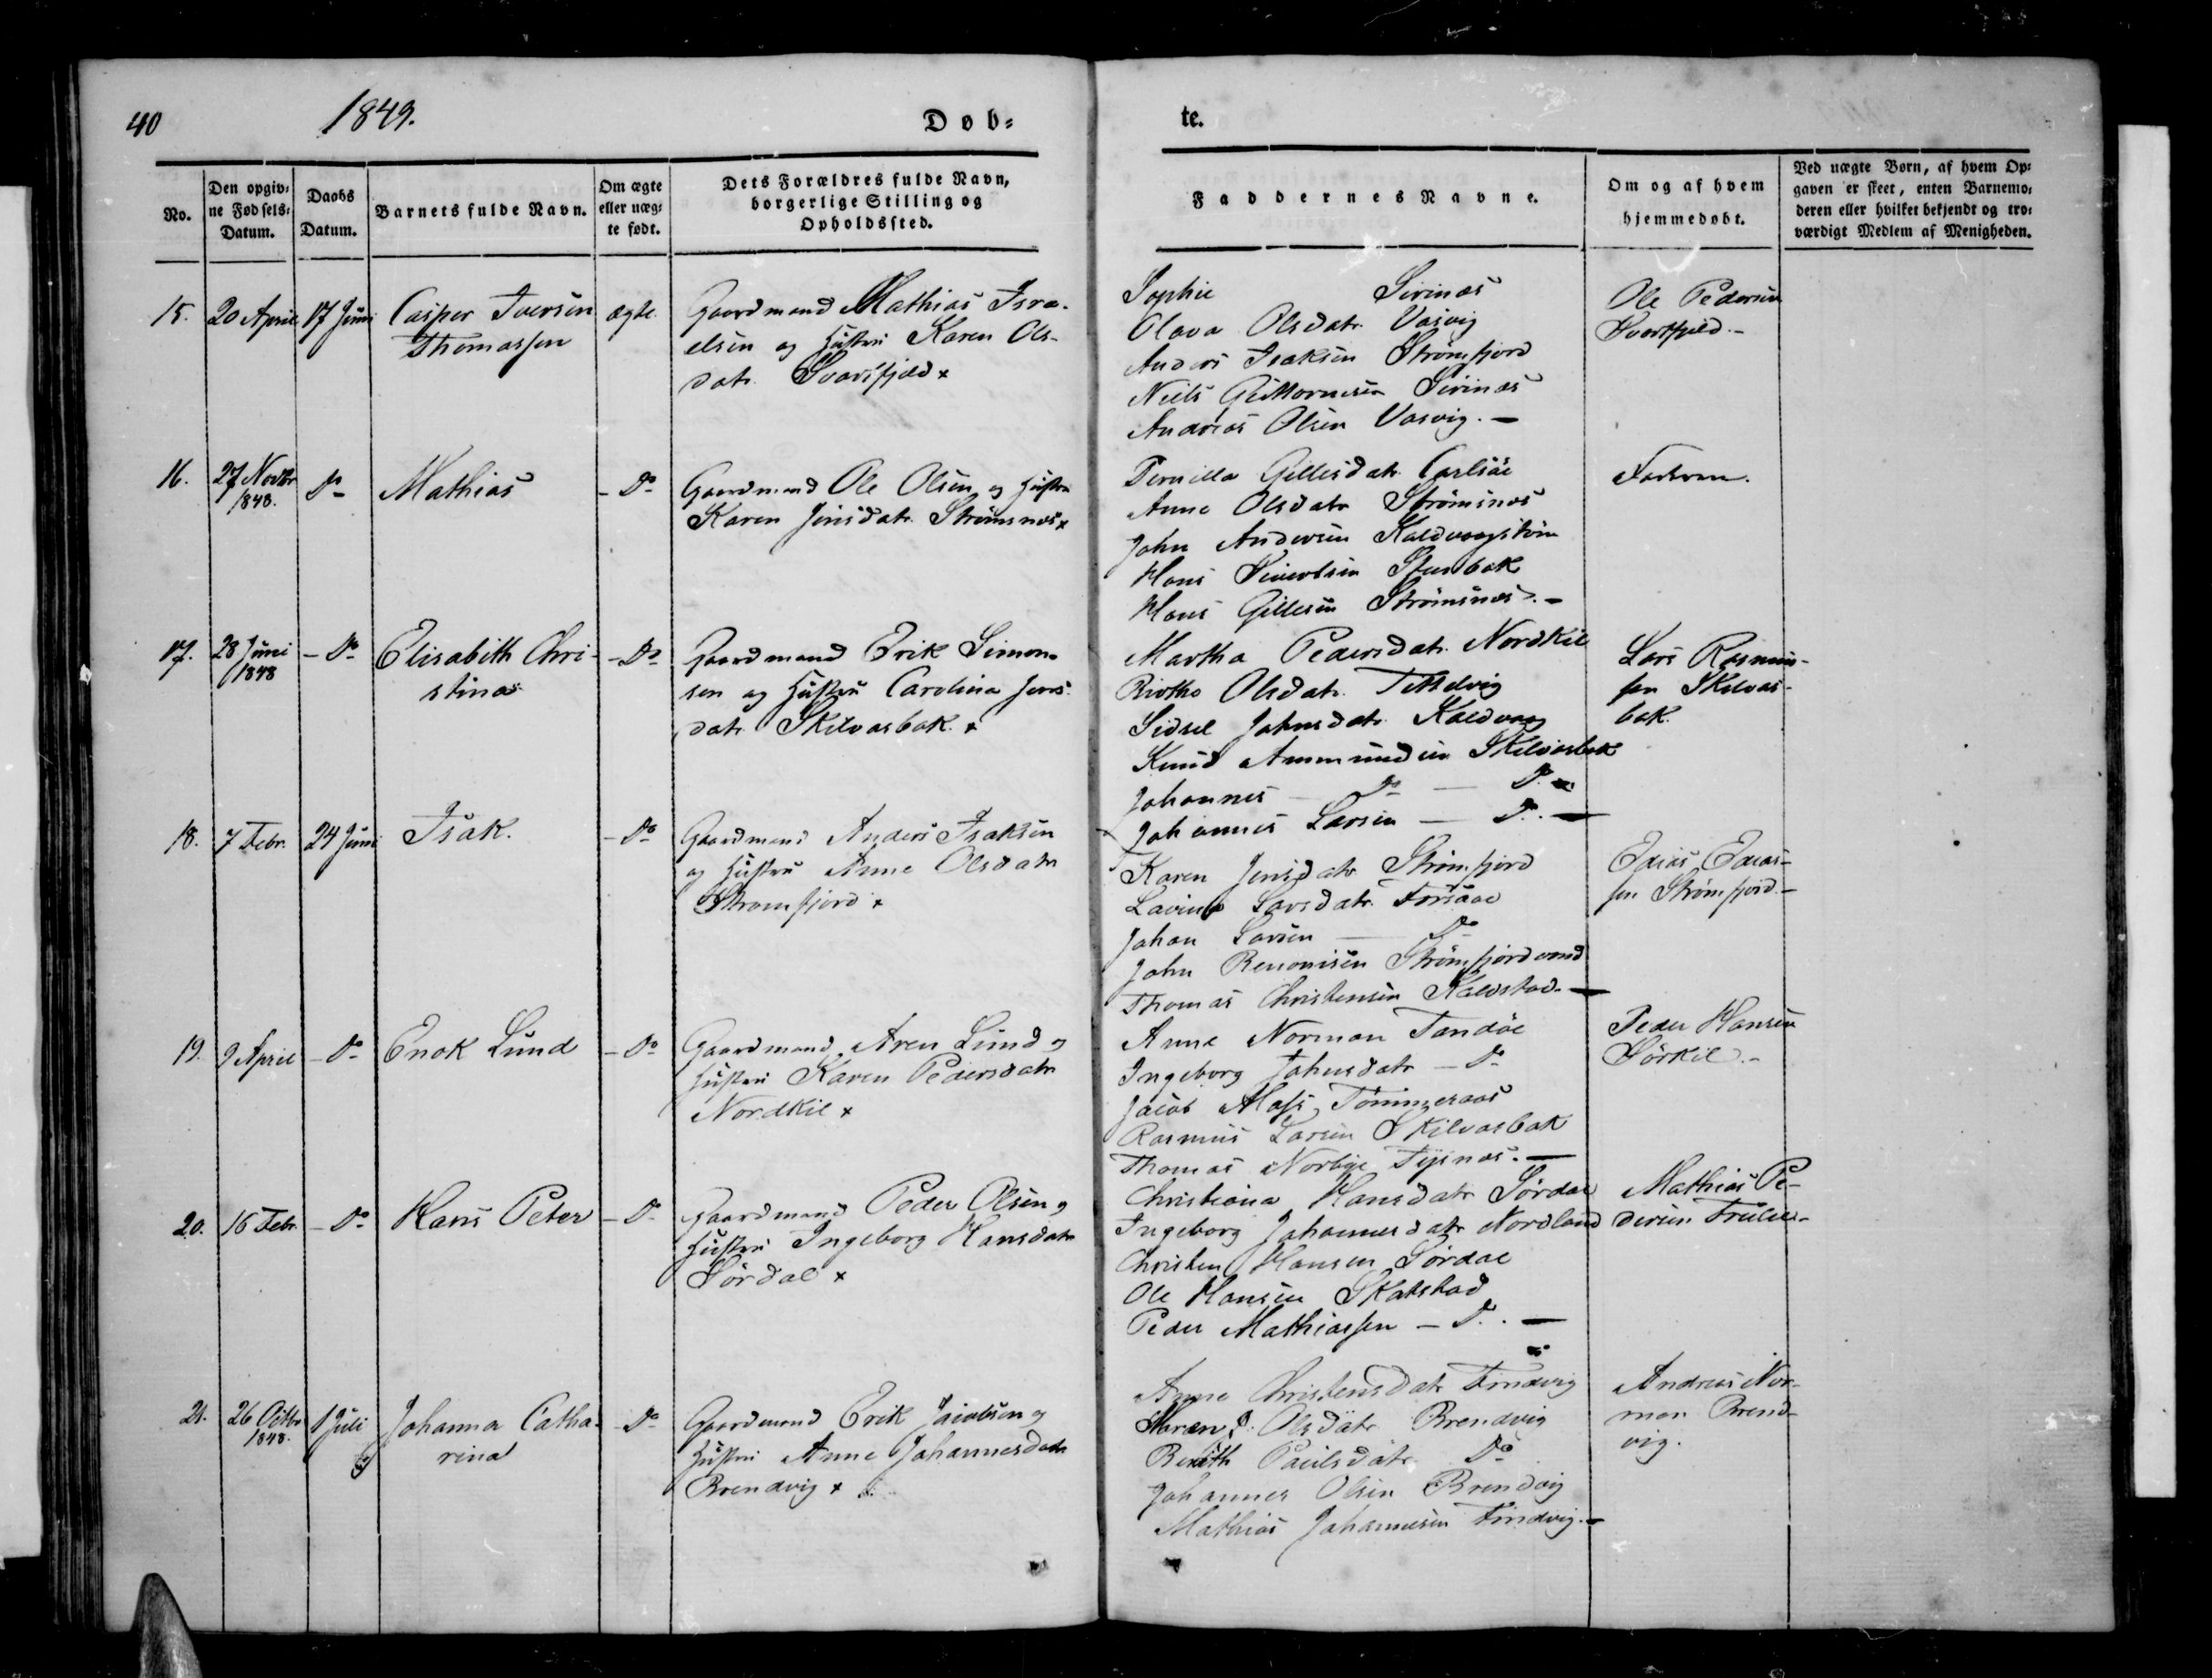 40
1849.
Døb=
te.
No.
Den opgiv=
ne Fødsels=
Datum.
Daabs
Datum.
Barnets fulde Navn.
Om ægte
eller uæg=
te født.
Dets Forældres fulde Navn,
borgerlige Stilling og
Opholdssted.
Faddernes Navne.
Om og af hvem
hjemmedøbt.
Ved uægte Børn, af hvem Op=
gaven er skeet, enten Barnemo=
deren eller hvilket bekjendt og tro=
værdigt Medlem af Menigheden.
15.
20 April
17 Juni
Casper Iversen
Thomassen
ægte.
Gaardmand Mathias Isra-
elsen og Hustru Karen Ols-
datr. Svartfjeld x
Sophie Sirinæs
Olava Olsdatr. Vasvig
Anders Isaksen Strømfjord
Niels Guttormsen Sirinæs
Andreas Olsen Vasvig. —
Ole Pedersen
Svartfjeld. -
16.
27 Novbr
1848.
Do
Mathias
- Do
Gaardmand Ole Olsen og Hustru
Karen Jensdatr. Strømsnæs x
Pernilla Gillesdatr. Carlsøe
Anne Olsdatr Strømsnæs
John Andersen Kaldvaagstrøm
Hans Sivertsen Stensbak
Hans Gillesen Strømsnæs. -
Faderen.
17.
28 Juni
1848
- Do
Elisabeth Chri-
stina
- Do
Gaardmand Erik Simon-
sen og Hustru Carolina Jens-
datr. Skilvasbak. x
Martha Pedersdatr. Nordkil
Birtha Olsdatr. Tettelvig
Sidsel Johnsdatr. Kaldvaag
Knud Ammundsen Skilvasbak
Johannes — Do — Do. —
Johannes Larsen — Do. —
Lars Rasmus-
sen Skilvas-
bak.
18.
7 Febr.
24 Juni
Isak.
- Do
Gaardmand Anders Isaksen
og Hustru Anne Olsdatr
Strømfjord x
Karen Jensdatr Strømfjord
Lavina Larsdatr. Forsaae
Johan Larsen — Do
John Strømfjordvand
Thomas Christensen Kaldstad. —
Esaias Esaias-
sen Strømfjord. -
19.
9 April
- Do
Enok Lund
- Do
Gaardmand Aren Lund og
Hustru Karen Pedersdatr
Nordkil x
Anne Norman Tandøe
Ingeborg Johnsdatr — Do
Jacob Moss Tømmeraas
Rasmus Larsen Skilvasbak
Thomas Norbye —
Peder Hansen
Sørkil. -
20.
16 Febr.
- Do
Hans Peter
- Do
Gaardmand Peder Olsen og
Hustru Ingeborg Hansdatr
Sørdal x
Christiana Hansdatr Sørdal
Ingeborg Johannesdatr Nordland
Christen Hansen Sørdal
Ole Hansen Skatstad
Peder Mathiassen — Do. —
Mathias Pe-
dersen
21.
26 Octbr
1848.
1 Juli
Johanna Catha-
rina
- Do
Gaardmand Erik Jacobsen og
Hustru Anne Johannesdatr
Brendvig x
Anne Christensdatr Tindvig
Maren P. Olsdatr Brendvig
Bereth Paulsdatr. Do
Johannes Olsen Brendvig
Mathias Johannesen Tindvig. —
Andreas Nor-
man Brend-
vig.